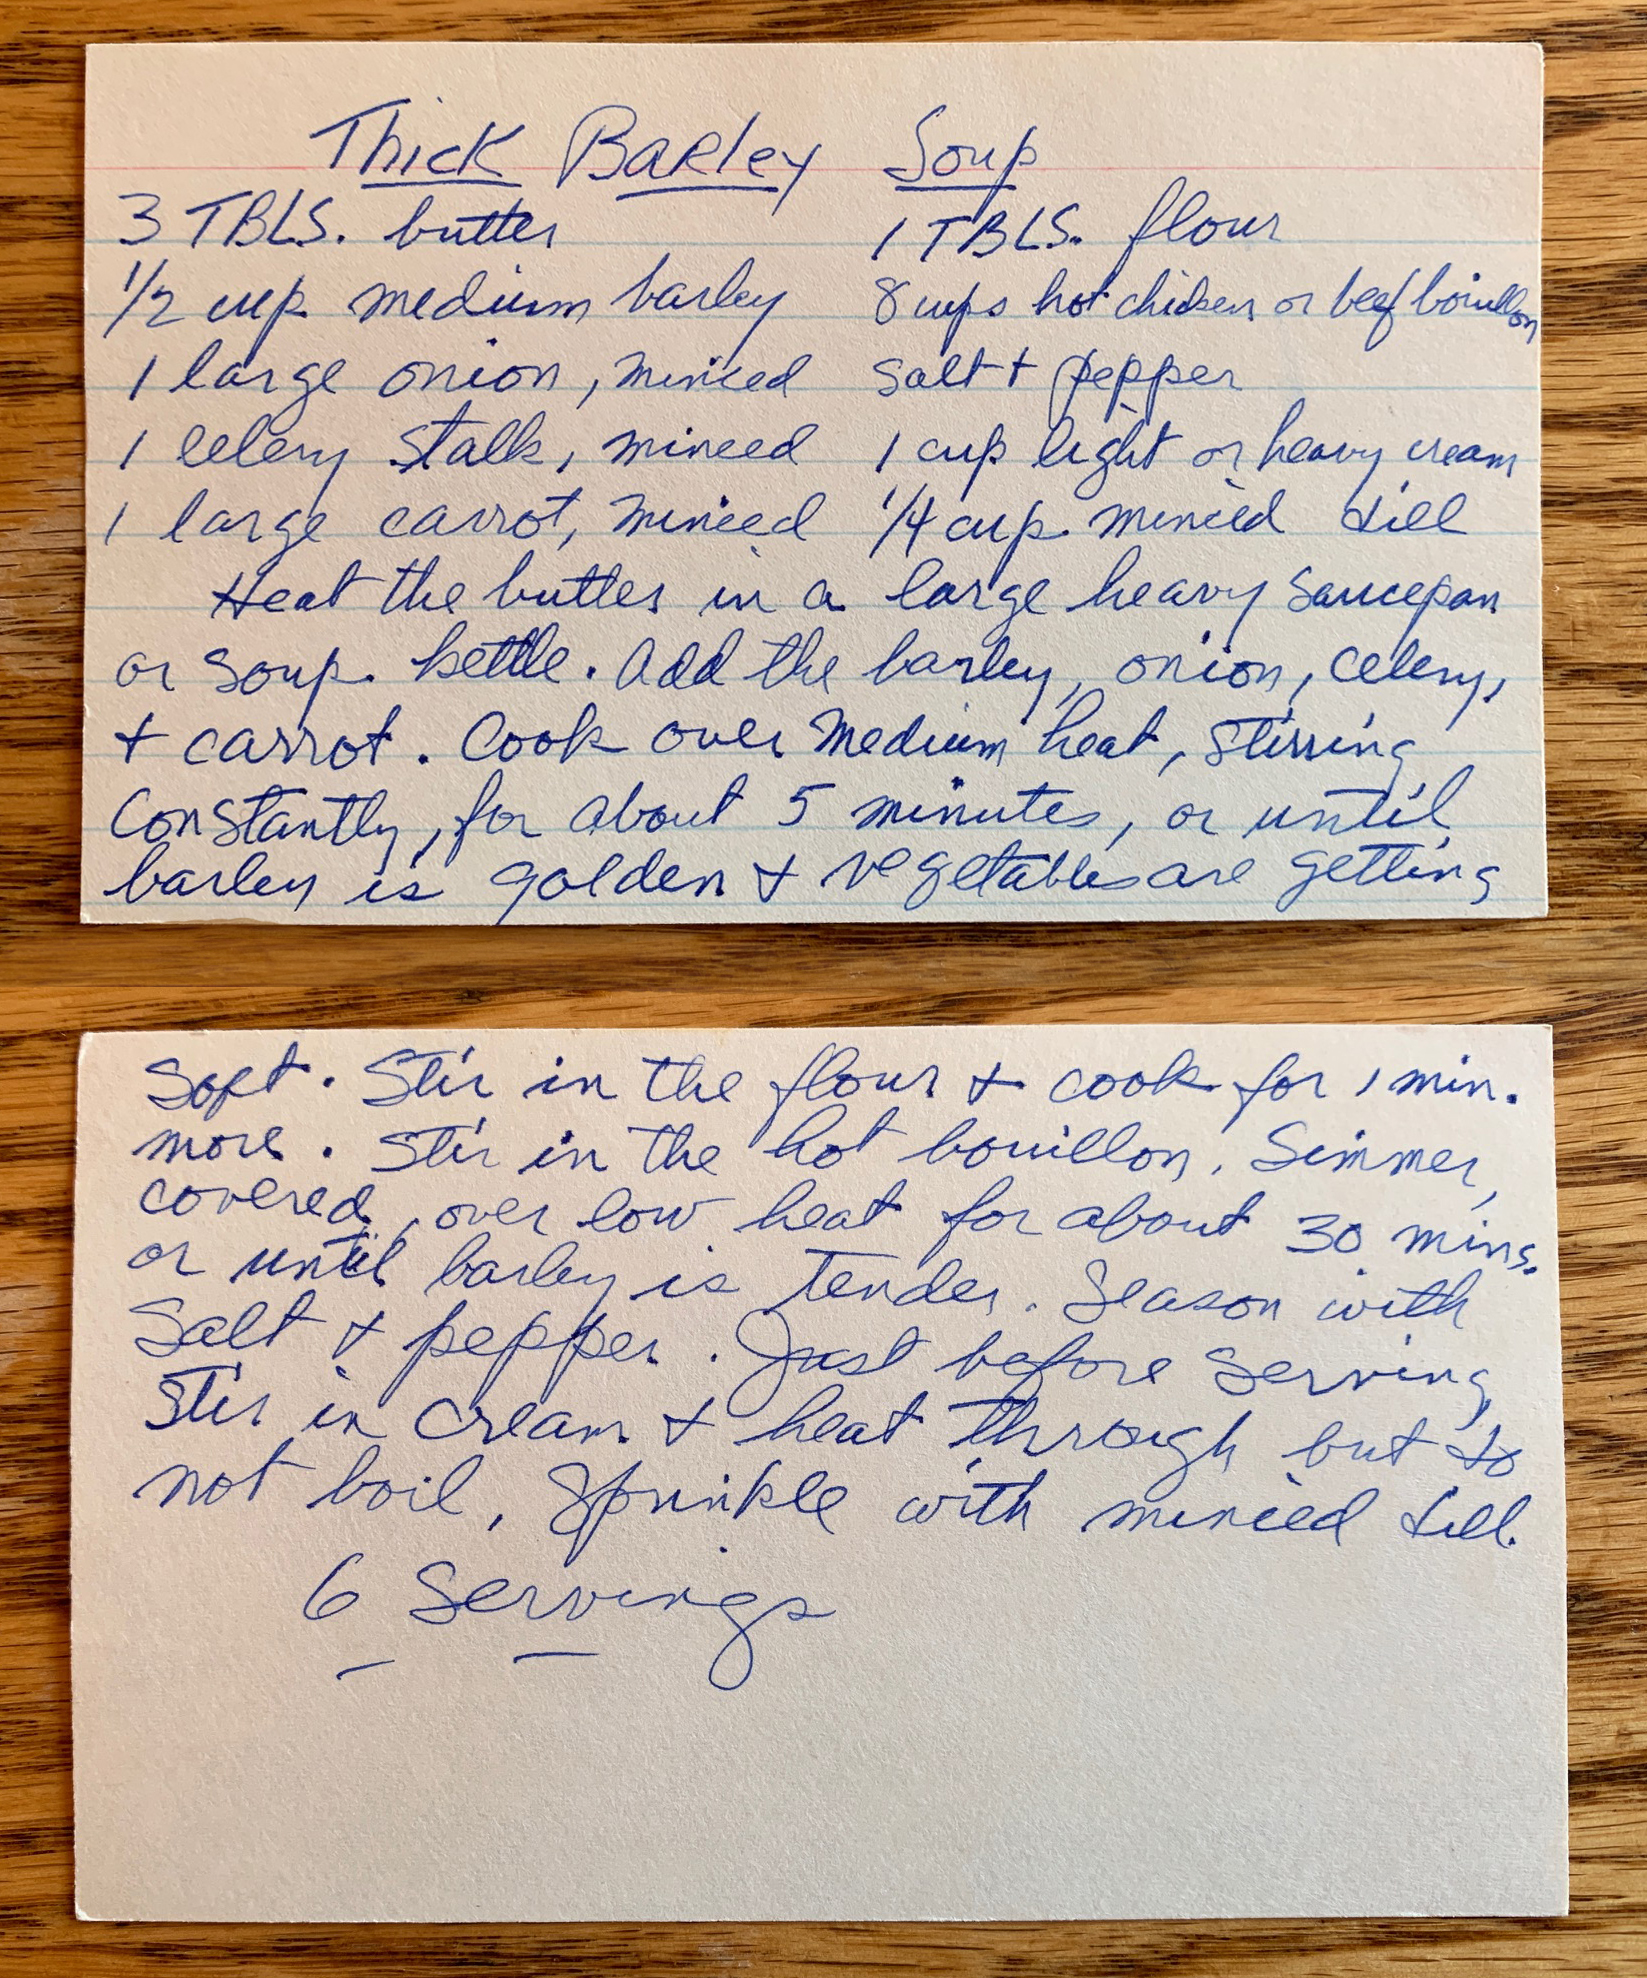 Thick Barley Soup
3 TBLS. butter 1 TBLS. flour
1/2 cup medium barley 8 cups hot chicken or beef bouillon
1 large onion, minced salt + pepper
1 celery stalk, minced 1 cup light or heavy cream
1 large carrot, minced 1/4 cup minced dill
Heat the butter in a large heavy saucepan
or soup kettle. Add the barley, onion, celery,
+ carrot. Cook over medium heat, stirring
constantly, for about 5 minutes, or until
barley is golden + vegetables are getting
soft. Stir in the flour + cook for 1 min.
more. Stir in the hot bouillon. Simmer,
covered, over low heat for about 30 mins.
or until barley is tender. Season with
salt + pepper. Just before serving,
stir in cream + heat through but do
not boil. Sprinkle with minced dill.
6 Servings